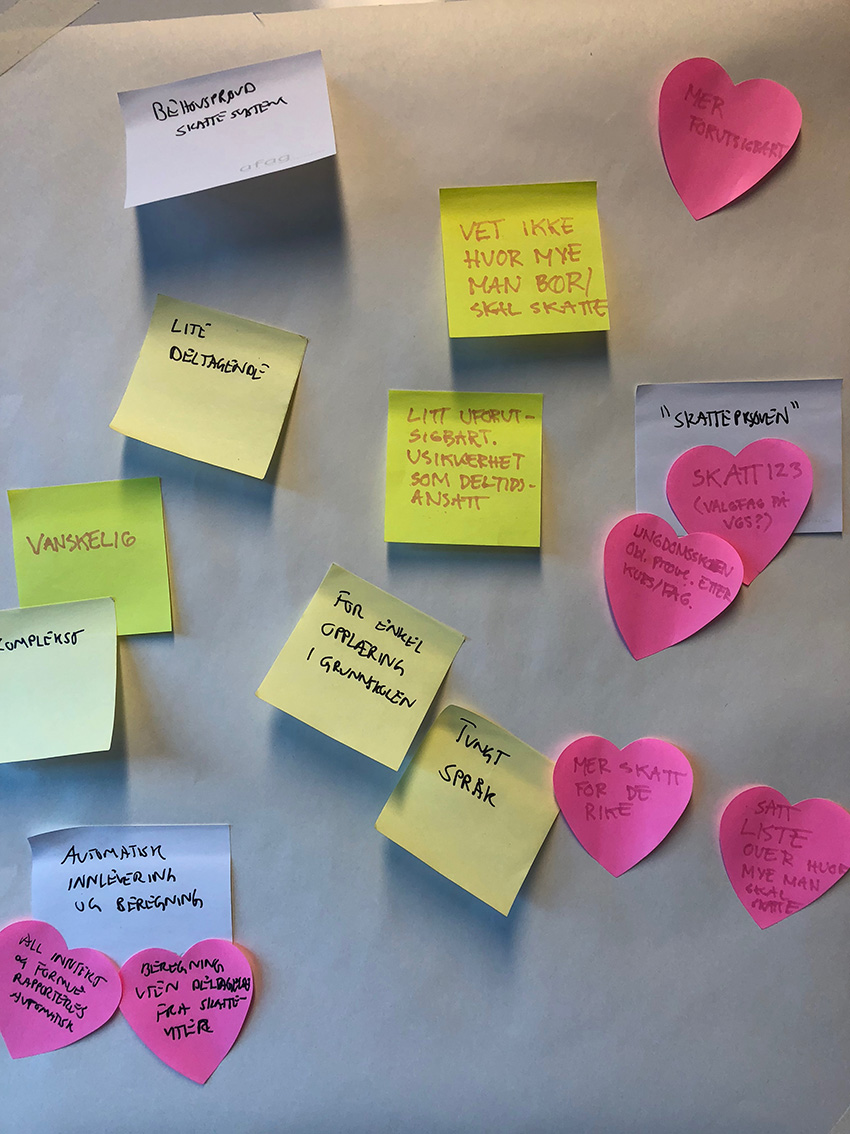 BEHOVSPRØVD
SKATTESYSTEM
afag
MER
FORUTSIGBART
VET IKKE
HVOR MYE
MAN BØR/
SKAL SKATTE
LITE
DELTAGENDE
LITT UFORUT-
SIGBART.
USIKKERHET
SOM DELTIDS-
ANSATT
"SKATTEPRØVEN"
SKATT123
(VALGFAG PÅ
VGS?)
UNGDOMSSKOLEN
OBL. PRØVE. ETTER
KURS/FAG.
VANSKELIG
KOMPLEKST
FOR ENKEL
OPPLÆRING
I GRUNNSKOLEN
TUNGT
SPRÅK
MER SKATT
FOR DE
RIKE
SATT
LISTE
OVER HVOR
MYE MAN
SKAL
SKATTE
AUTOMATISK
INNLEVERING
OG BEREGNING
ALL INNTEKT
OG FORMUE
RAPPORTERES
AUTOMATISK
BEREGNING
UTEN DELTAGELSE
FRA SKATTE-
YTERE